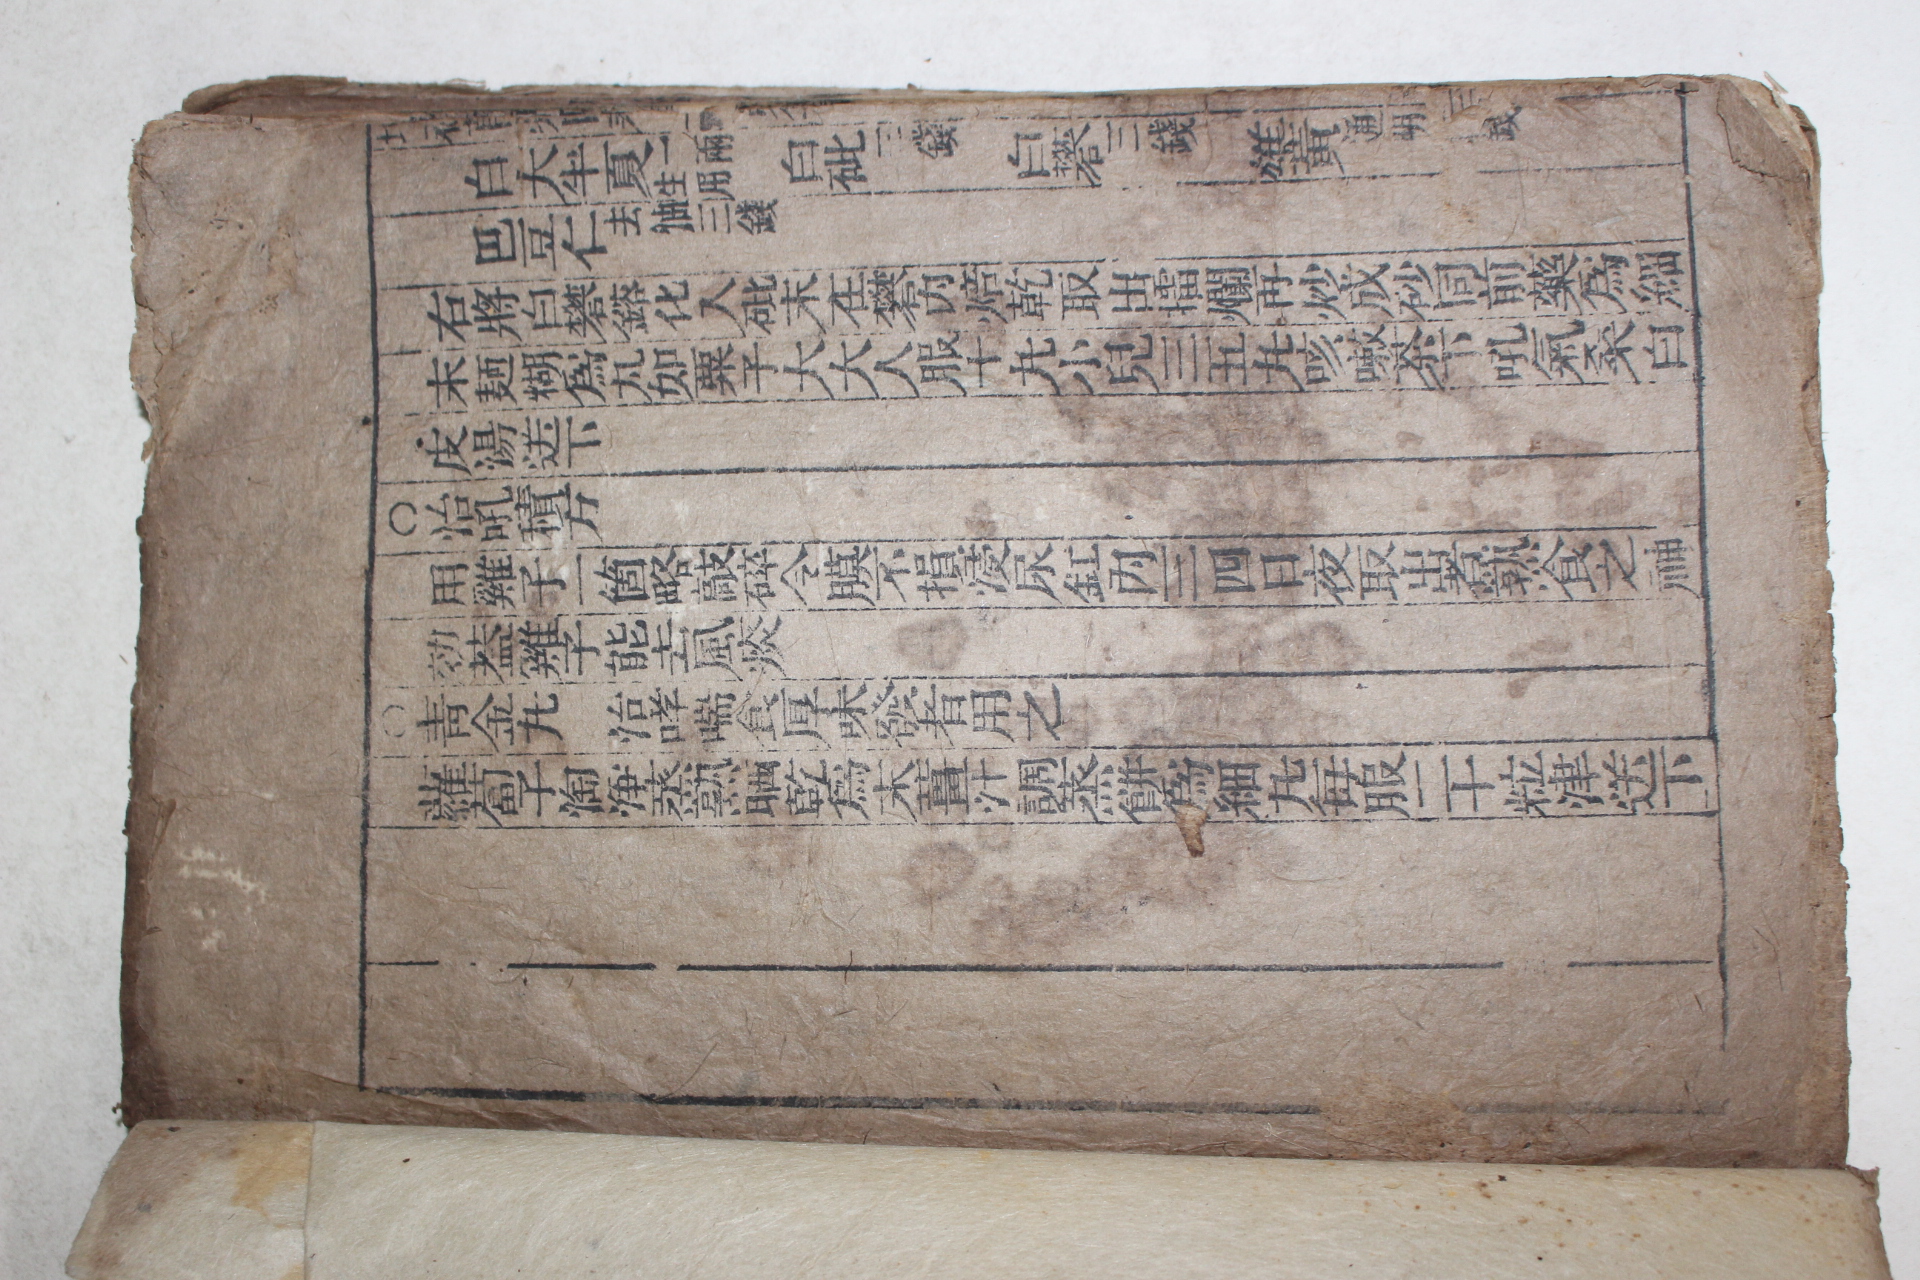 白大半夏一兩生用 白砒三錢 白礬三錢 雄黃通明三錢
巴豆仁去油三錢
右將白礬鎔化入砒末在礬內焙乾取出擂爛再炒成砂同前藥爲細
末麵糊爲丸如粟子大大人服十丸小兒三五丸咳嗽茶下吼氣桑白
皮湯送下
○治吼積方
用雞子一箇略敲碎令膜不損浸尿缸內三四日夜取出煮熟食之神
効盖雞子能去風痰
○青金丸 治哮喘食厚味發者用之
蘿蔔子淘海蒸熟晒乾爲末薑汁調蒸餅爲細丸每服二十粒津送下